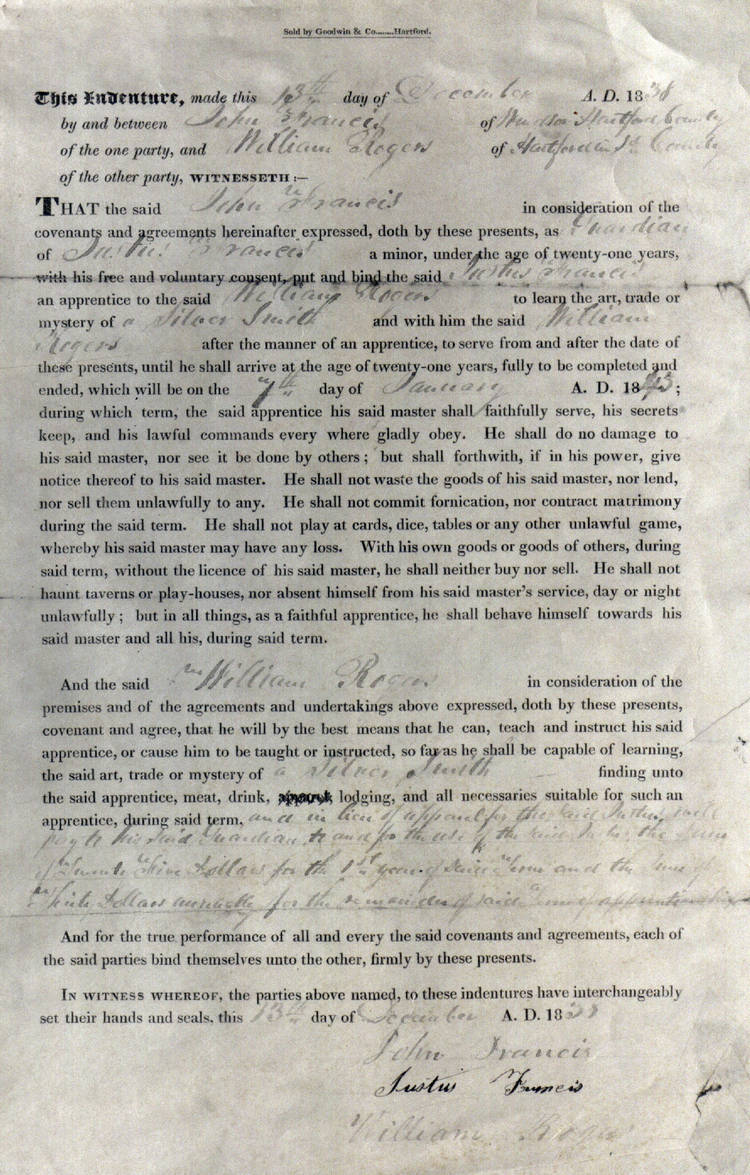 Sold by Goodwin & Co.......Hartford.
This Indenture, made this 13th day of December A. D. 1838
by and between John Francis of Windsor Hartford County
of the one party, and William Rogers of Hartford in sd. County
of the other party, WITNESSETH:—
THAT the said John Francis in consideration of the
covenants and agreements hereinafter expressed, doth by these presents, as Guardian
of Justus Francis a minor, under the age of twenty-one years,
with his free and voluntary consent, put and bind the said Justus Francis
an apprentice to the said William Rogers to learn the art, trade or
mystery of a Silver Smith and with him the said William
Rogers after the manner of an apprentice, to serve from and after the date of
these presents, until he shall arrive at the age of twenty-one years, fully to be completed and
ended, which will be on the 7th day of January A. D. 18 ;
during which term, the said apprentice his said master shall faithfully serve, his secrets
keep, and his lawful commands every where gladly obey. He shall do no damage to
his said master, nor see it be done by others; but shall forthwith, if in his power, give
notice thereof to his said master. He shall not waste the goods of his said master, nor lend,
nor sell them unlawfully to any. He shall not commit fornication, nor contract matrimony
during the said term. He shall not play at cards, dice, tables or any other unlawful game,
whereby his said master may have any loss. With his own goods or goods of others, during
said term, without the licence of his said master, he shall neither buy nor sell. He shall not
haunt taverns or play-houses, nor absent himself from his said master's service, day or night
unlawfully; but in all things, as a faithful apprentice, he shall behave himself towards his
said master and all his, during said term.
And the said William Rogers in consideration of the
premises and of the agreements and undertakings above expressed, doth by these presents,
covenant and agree, that he will by the best means that he can, teach and instruct his said
apprentice, or cause him to be taught or instructed, so far as he shall be capable of learning,
the said art, trade or mystery of a Silver Smith finding unto
the said apprentice, meat, drink, lodging, and all necessaries suitable for such an
apprentice, during said term, and in lieu of apparel for the said Justus will
pay to his said Guardian to and for the use of the said Justus, the sum
of Twenty Five Dollars for the 1st year of said Term and the sum of
Thirty Dollars annually for the remainder of said Term of apprenticeship
And for the true performance of all and every the said covenants and agreements, each of
the said parties bind themselves unto the other, firmly by these presents.
IN WITNESS WHEREOF, the parties above named, to these indentures have interchangeably
set their hands and seals, this 13th day of December A. D. 1838
John Francis
Justus Francis
William Rogers